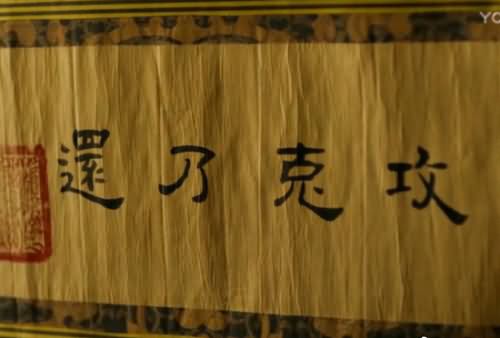 YO
攻克乃還